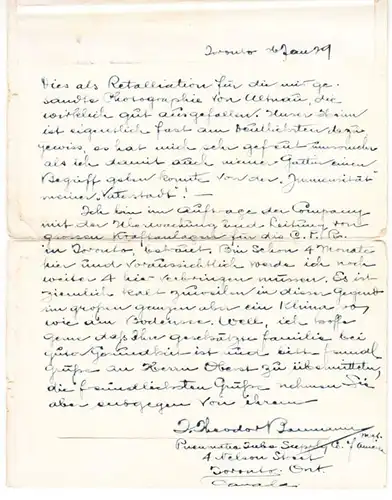 Toronto 6 Jan 29
Dies als Retalliation für die mir ge-
sandte Photographie von Altnau, die
wirklich gut ausgefallen. Ihr Heim
ist eigentlich fast am deutlichsten dazu
gewiss, es hat mich sehr gefreut umsomehr
als ich damit auch meiner Gattin einen
Begriff geben konnte von der "
meiner Vaterstadt"! —
Ich bin im Auftrage der Company
mit der Überwachung und Leitung von
grossen Kraftanlagen für die C.P.R.
in Toronto betraut. Bin schon 4 Monate
hier und voraussichtlich werde ich noch
weiter 4 hier verbringen müssen. Es ist
ziemlich kalt zuweilen in dieser Gegend
im grossen ganzen aber ein Klima so
wie am Bodensee. Well, ich hoffe
gerne dass Ihre geschätzte Familie bei
guter Gesundheit ist und bitte freundl.
Grüsse an Herrn Oberst zu übermitteln,
die freundlichsten Grüsse nehmen Sie
aber entgegen von Ihrem
Theodor Baumann
Pneumatic Tube Supply Co. of America
4 Nelson Street
Toronto, Ont.
Canada